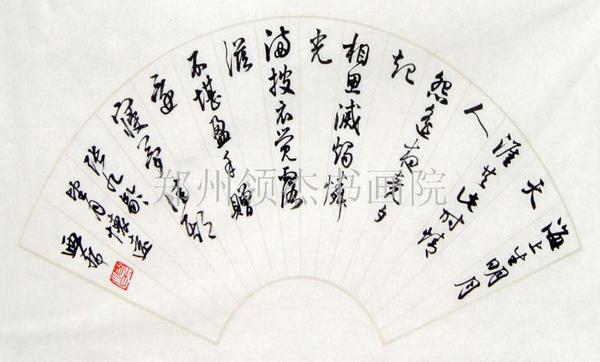 海上生明月
天
涯共此时情
人
怨遥夜竟夕
起
相思滅烛憐
光
满披衣觉露
滋
不堪盈手赠
還
寝梦佳期
张九龄懷遠
望月
郑州领杰书画院